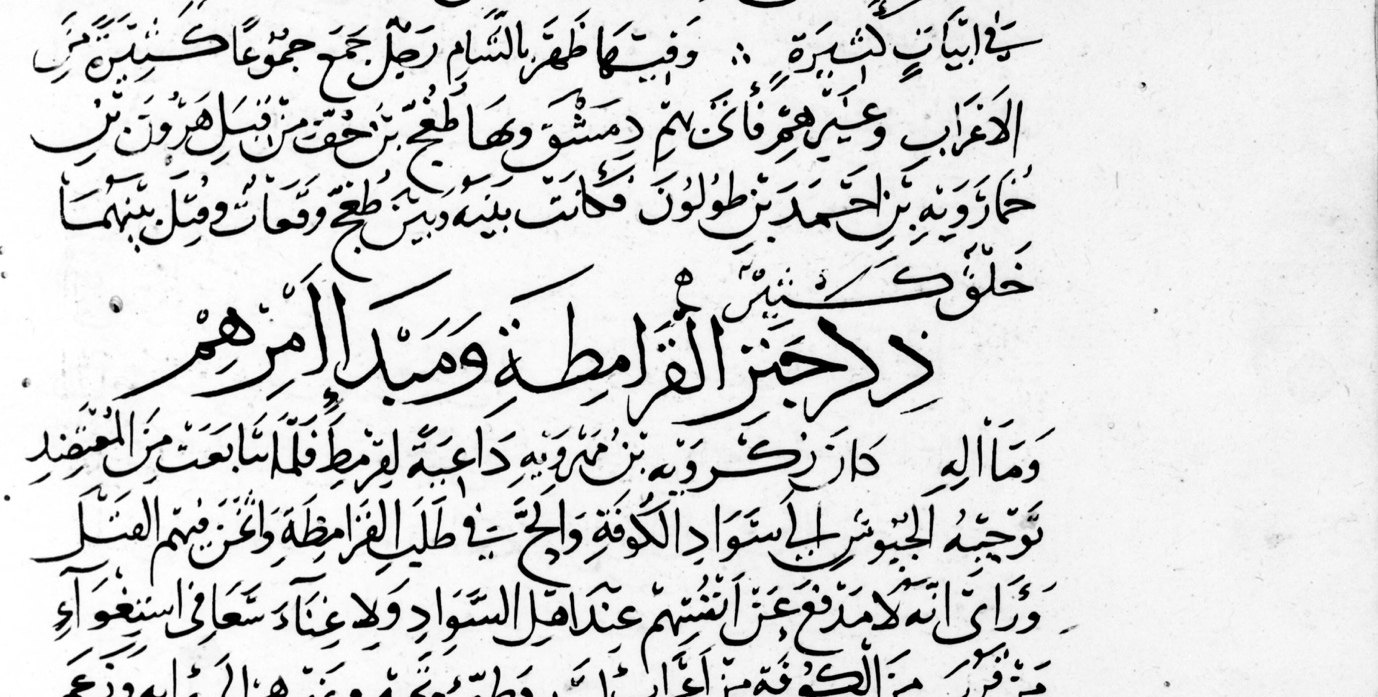 في ابيات كثيرة ∴ وَفيهَا ظَهَرَ بالشَّامِ رَجُلٌ جَمَعَ جمُوعًا كثيرَةً مِنَ
الاَعْرَابِ وغيرِهِمْ فأتى بهم دِمَشْقَ وبهَا طُغْجُّ بْنُ جُفّ مِنْ قِبَلِ هَرُونَ بْنِ
خُمَارَوَيْهِ بْنِ احْمَدَ بْنِ طُولُونَ فكَانَتْ بَيْنَهُ وَبَيْنَ طُغْجّ وَقَعَاتٌ وقُتِلَ بَيْنهُمَا
خَلْقٌ كَثِيرٌ
ذِكر خَبَر القَرَامِطَةِ وَمَبْدَإِ اَمْرِهِمْ
وَمَا اۤلِهِ كانَ زكْرَوَيْهِ بْنُ مَهْرَوَيْهِ دَاعِيَةً لِقِرْمِطَ فَلَمَّا تَتَابَعَتْ مِنَ المُعْتَضِدِ
تَوْجِيهُ الجُيُوشِ اِلى سَوَادِ الكُوفَةِ وَالَحَّ في طَلَبِ القَرَامِطَةِ وَاثْخَنَ فيهم القَتْلَ
وَرَأىَ انّهُ لاَ مَدْفَعَ عَنْ اَنْفُسِهِمْ عِنْدَ اهْلِ السَّوَادِ وَلا غِنَآءَ سَعَا في اسْتِغْوَآءِ
مَنْ قَرُبَ مِنَ الْكُوفَةِ مِنْ أَعْرَابِ